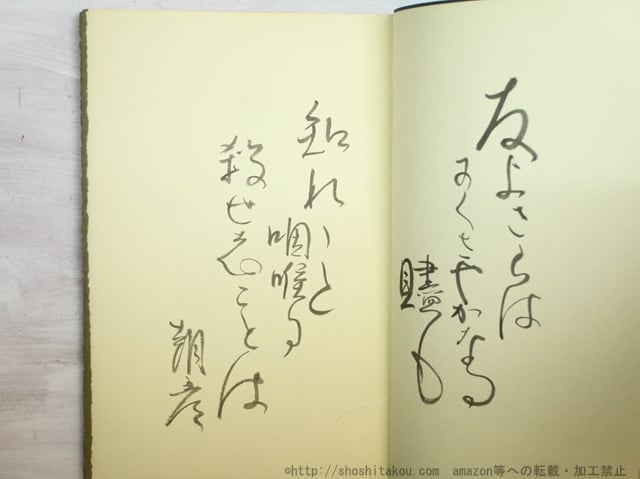 友よさらは
やかなる
贐も
知れ
咽喉
殺せしことは
朝彦
©http://shoshitakou.com amazon等への転載・加工禁止